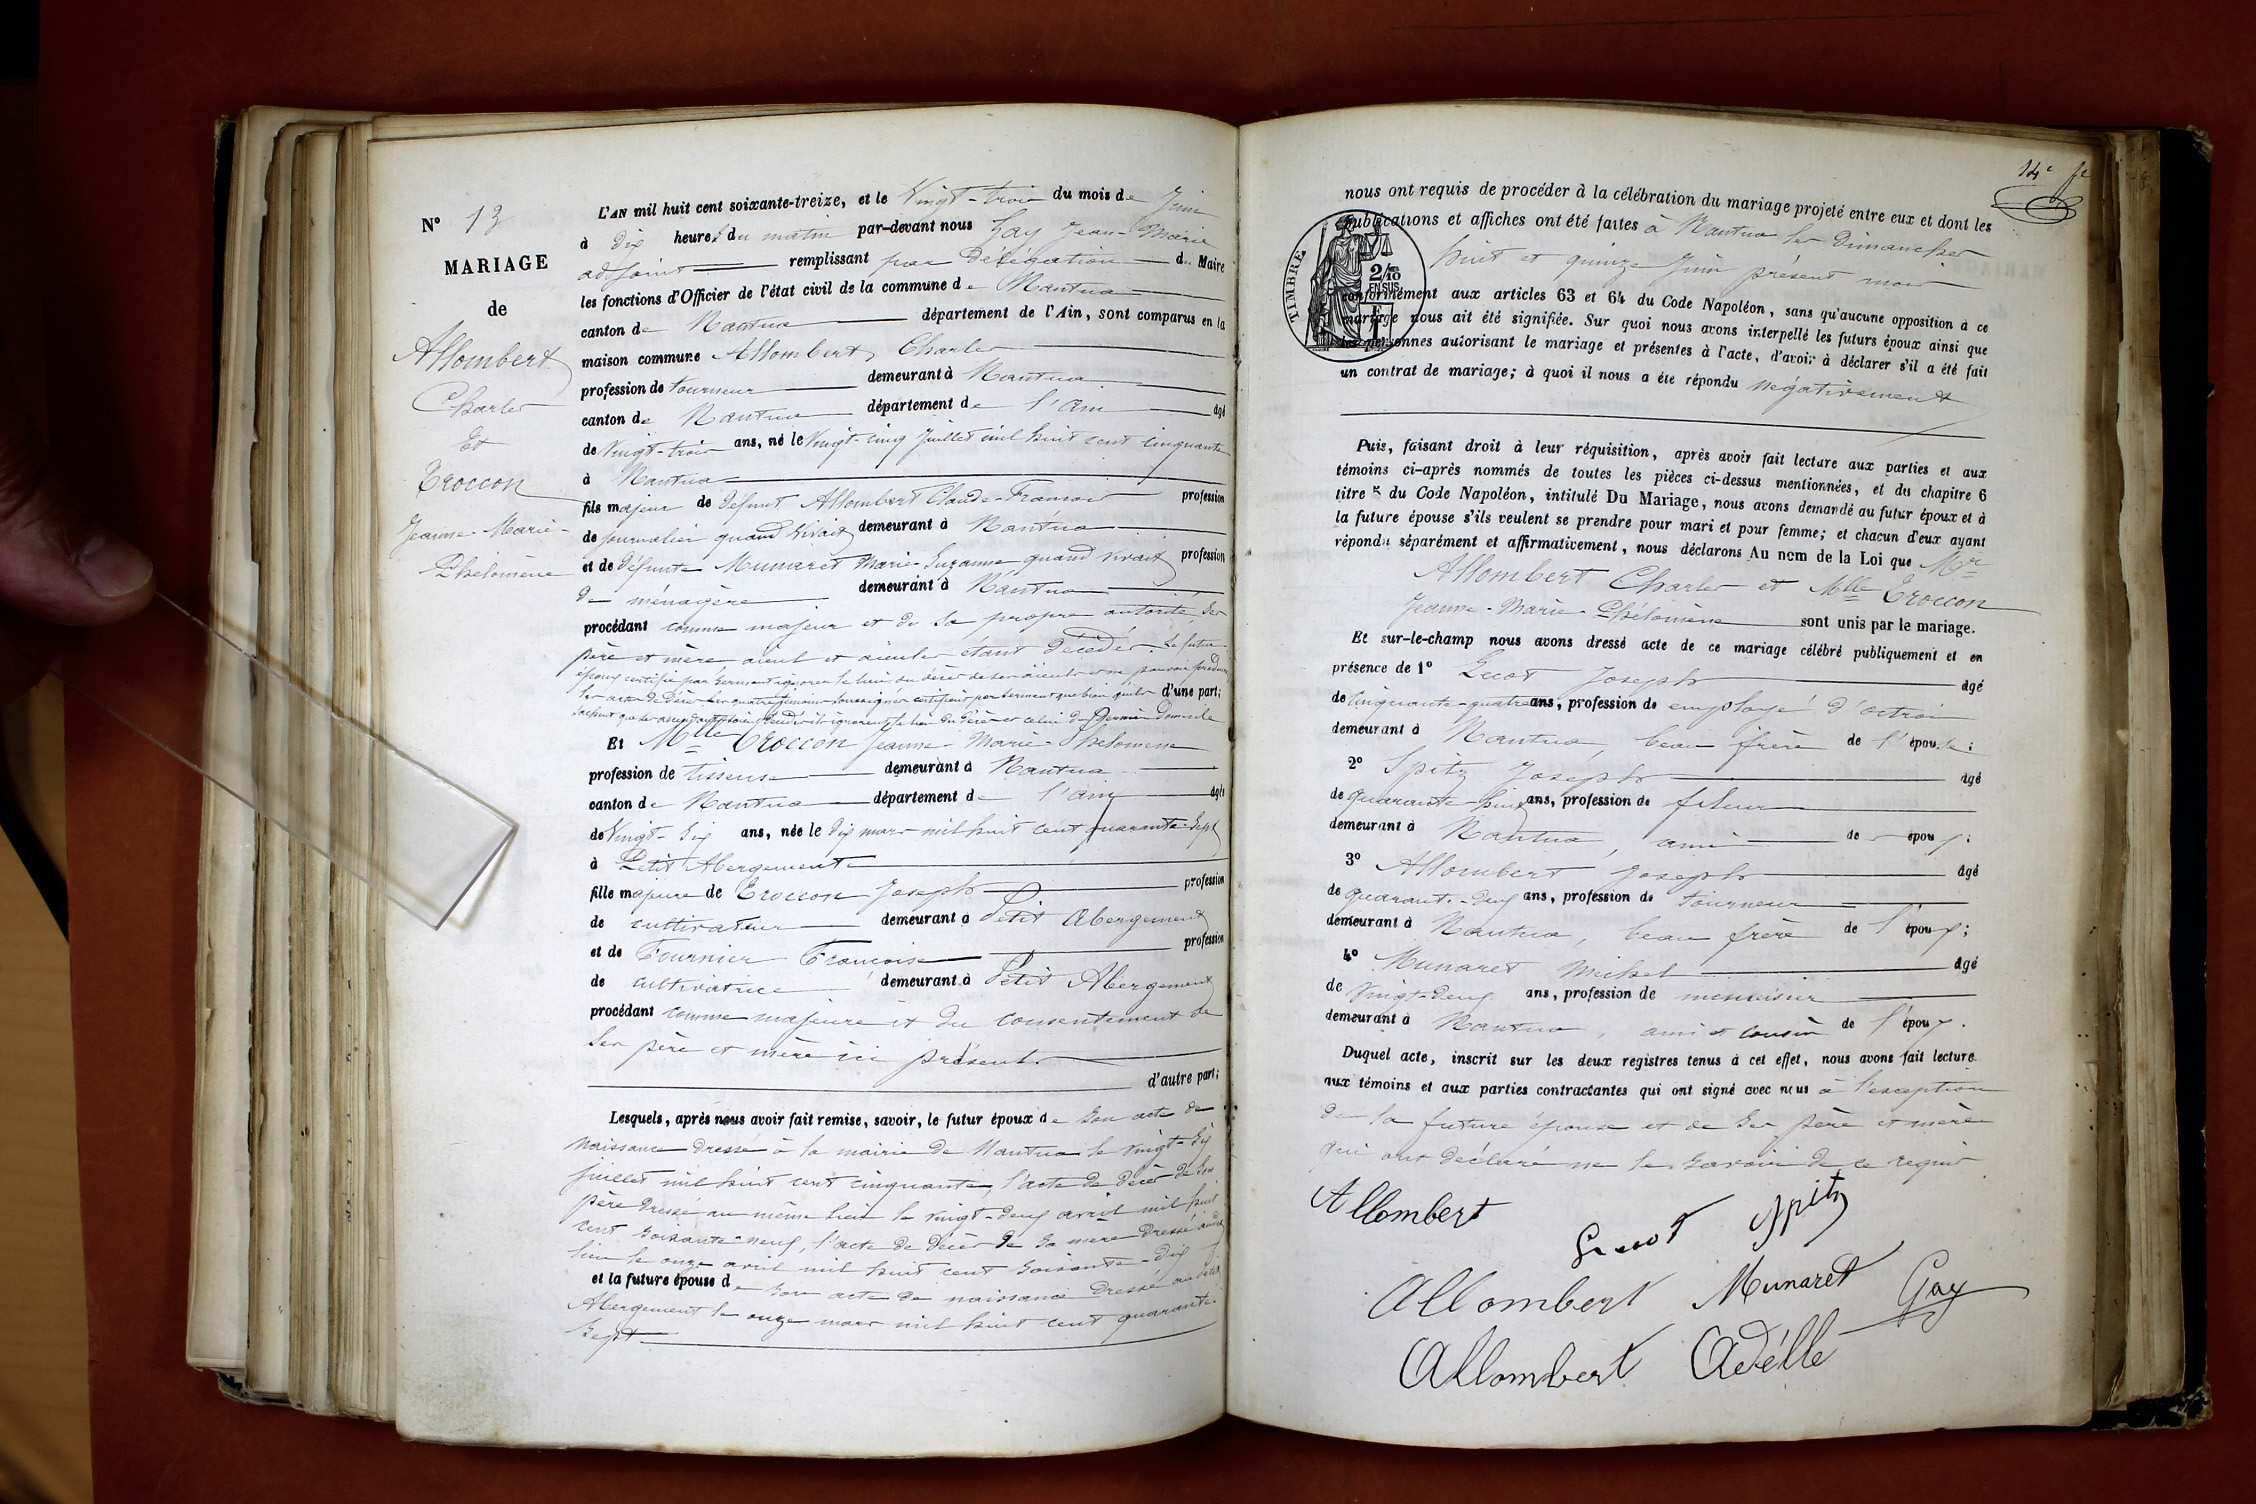 N° 13
MARIAGE
de
Allombert
Charles
Et
Troccon
Jeanne-Marie-
Phélomène
L'AN mil huit cent soixante-treize, et le Vingt-trois du mois de Juin
à dix heures du matin par-devant nous Gay Jean-Marie
adjoint remplissant par délégation du Maire
les fonctions d'Officier de l'état civil de la commune de Nantua
canton de Nantua département de l'Ain, sont comparus en la
maison commune Allombert, Charles
profession de tourneur demeurant à Nantua
canton de Nantua département de l'Ain âgé
de Vingt-trois ans, né le Vingt-cinq Juillet mil huit cent cinquante
à Nantua
fils majeur de défunt Allombert Claude-François profession
de journalier quand vivait demeurant à Nantua
et de défunte Munaret Marie-Suzanne quand vivait profession
de ménagère demeurant à Nantua
procédant comme majeur et de sa propre autorité, ses
père et mère aïeul et aïeules étant décédés. Le futur
époux certifie par serment ignorer le lieu du décès de ses aïeuls et ne pouvoir produire
les actes de décès. Les quatre témoins soussignés certifient par serment que bien qu'ils d'une part;
ils ignorent le lieu du décès et celui du dernier domicile
Et Mlle Troccon Jeanne-Marie-Phélomène
profession de tisseuse demeurant à Nantua
canton de Nantua département de l'Ain âgée
de Vingt-six ans, née le dix mars mil huit cent quarante-sept
à Petit Abergement
fille majeure de Troccon Joseph profession
de cultivateur demeurant à Petit Abergement
et de Fournier Françoise profession
de cultivatrice demeurant à Petit Abergement
procédant comme majeure et du consentement de
ses père et mère ici présents
d'autre part;
Lesquels, après nous avoir fait remise, savoir, le futur époux de son acte de
naissance dressé à la mairie de Nantua le vingt-six
juillet mil huit cent cinquante, l'acte de décès de son
père dressé au même lieu le vingt-deux avril mil huit
cent soixante-neuf, l'acte de décès de sa mère dressé audit
lieu le onze avril mil huit cent soixante-dix
et la future épouse de son acte de naissance dressé au Petit
Abergement le onze mars mil huit cent quarante-
sept
14e
nous ont requis de procéder à la célébration du mariage projeté entre eux et dont les
publications et affiches ont été faites à Nantua les dimanches
huit et quinze Juin présent mois
conformément aux articles 63 et 64 du Code Napoléon, sans qu'aucune opposition à ce
mariage nous ait été signifiée. Sur quoi nous avons interpellé les futurs époux ainsi que
les personnes autorisant le mariage et présentes à l'acte, d'avoir à déclarer s'il a été fait
un contrat de mariage; à quoi il nous a été répondu négativement
TIMBRE
2/10
EN SUS
Puis, faisant droit à leur réquisition, après avoir fait lecture aux parties et aux
témoins ci-après nommés de toutes les pièces ci-dessus mentionnées, et du chapitre 6
titre 5 du Code Napoléon, intitulé Du Mariage, nous avons demandé au futur époux et à
la future épouse s'ils veulent se prendre pour mari et pour femme; et chacun d'eux ayant
répondu séparément et affirmativement, nous déclarons Au nom de la Loi que Mr
Allombert Charles et Mlle Troccon
Jeanne-Marie-Phélomène sont unis par le mariage.
Et sur-le-champ nous avons dressé acte de ce mariage célébré publiquement et en
présence de 1° Joseph âgé
de cinquante-quatre ans, profession de employé d'octroi
demeurant à Nantua, beau frère de l'épouse;
2° Spitz Joseph âgé
de quarante-huit ans, profession de fileur
demeurant à Nantua, ami de époux;
3° Allombert Joseph âgé
de quarante-deux ans, profession de tourneur
demeurant à Nantua, beau frère de l'époux;
4° Munaret Michel âgé
de Vingt-deux ans, profession de menuisier
demeurant à Nantua, ami et cousin de l'époux.
Duquel acte, inscrit sur les deux registres tenus à cet effet, nous avons fait lecture
aux témoins et aux parties contractantes qui ont signé avec nous à l'exception
de la future épouse et de ses père et mère
qui ont déclaré ne le savoir de ce requis
Allombert
Spitz
Allombert Munaret Gay
Allombert Adélle